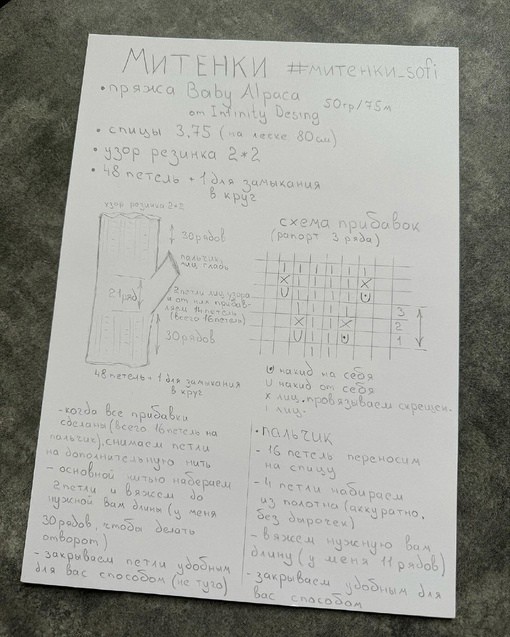 МИТЕНКИ #митенки_sofi
• пряжа Baby Alpaca 50гр/75м
от Infinity Desing
• спицы 3,75 (на леске 80см)
• узор резинка 2*2
• 48 петель + 1 для замыкания
в круг
узор резинка 2*2
30 рядов
пальчик,
лиц. гладь
21 ряд
2 петли лиц. узора
и от них прибав-
ляем 14 петель
(всего 16 петель)
30 рядов
48 петель + 1 для замыкания
в круг
схема прибавок
(рапорт 3 ряда)
3
2
1
накид на себя
U накид от себя
X лиц. провязываем скрещен.
I лиц.
- когда все прибавки
сделаны (всего 16 петель на
пальчик), снимаем петли
на дополнительную нить
- основной нитью набераем
2 петли и вяжем до
нужной вам длины (у меня
30 рядов, чтобы делать
отворот)
- закрываем петли удобным
для вас способом (не туго)
• пальчик
- 16 петель переносим
на спицу
- 4 петли набираем
из полотна (аккуратно,
без дырочек)
- вяжем нужную вам
длину (у меня 11 рядов)
- закрываем удобным для
вас способом